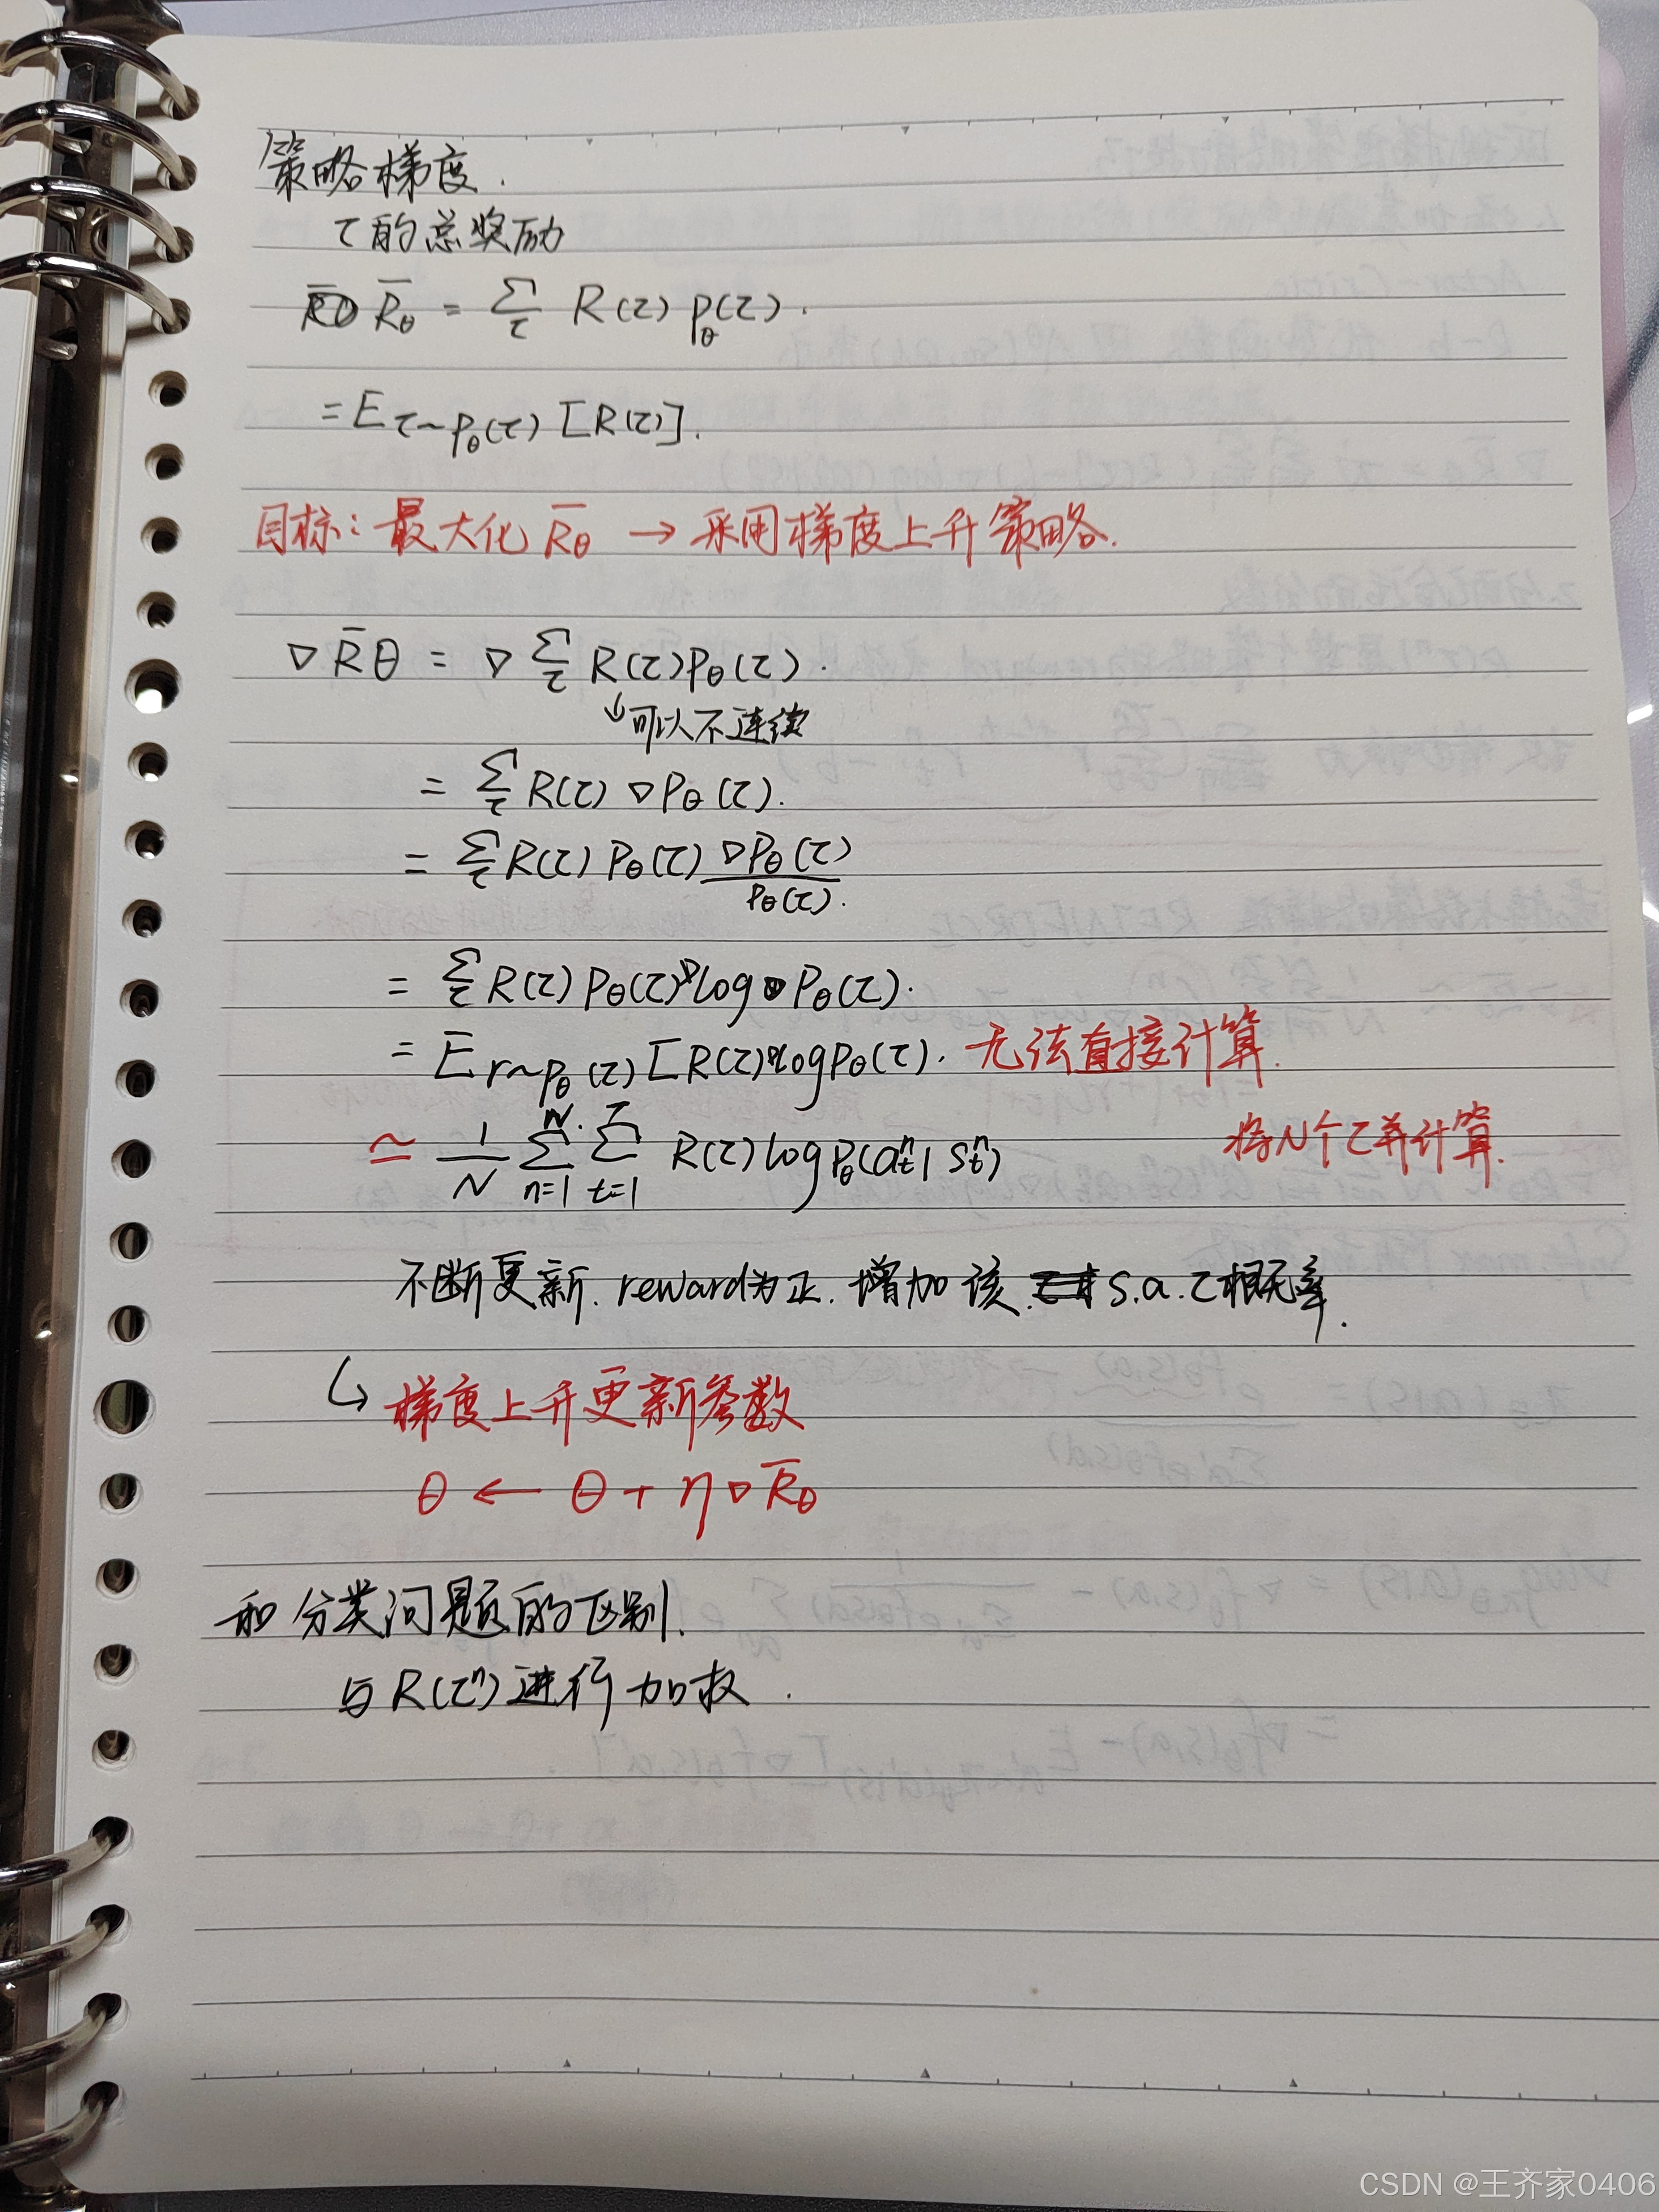 策略梯度.
τ的总奖励
R̄θ = Σ_τ R(τ) p_θ(τ).
= E_{τ~p_θ(τ)} [R(τ)].
目标：最大化 R̄θ → 采用梯度上升策略.
∇R̄θ = ∇ Σ_τ R(τ) P_θ(τ).
↓可以不连续
= Σ_τ R(τ) ∇P_θ(τ).
= Σ_τ R(τ) P_θ(τ) ∇P_θ(τ) / P_θ(τ).
= Σ_τ R(τ) P_θ(τ) ∇log P_θ(τ).
= E_{r~p_θ(τ)} [R(τ) ∇log p_θ(τ). 无法直接计算.
≃ 1/N Σ_{n=1}^{N} Σ_{t=1}^{T} R(τ) log p_θ(a_t^n | s_t^n) 将N个τ并计算.
不断更新. reward为正. 增加该 s.a. τ概率.
↳ 梯度上升更新参数
θ ← θ + η∇R̄θ
和分类问题的区别.
与R(τⁿ)进行加权.
CSDN @王齐家0406